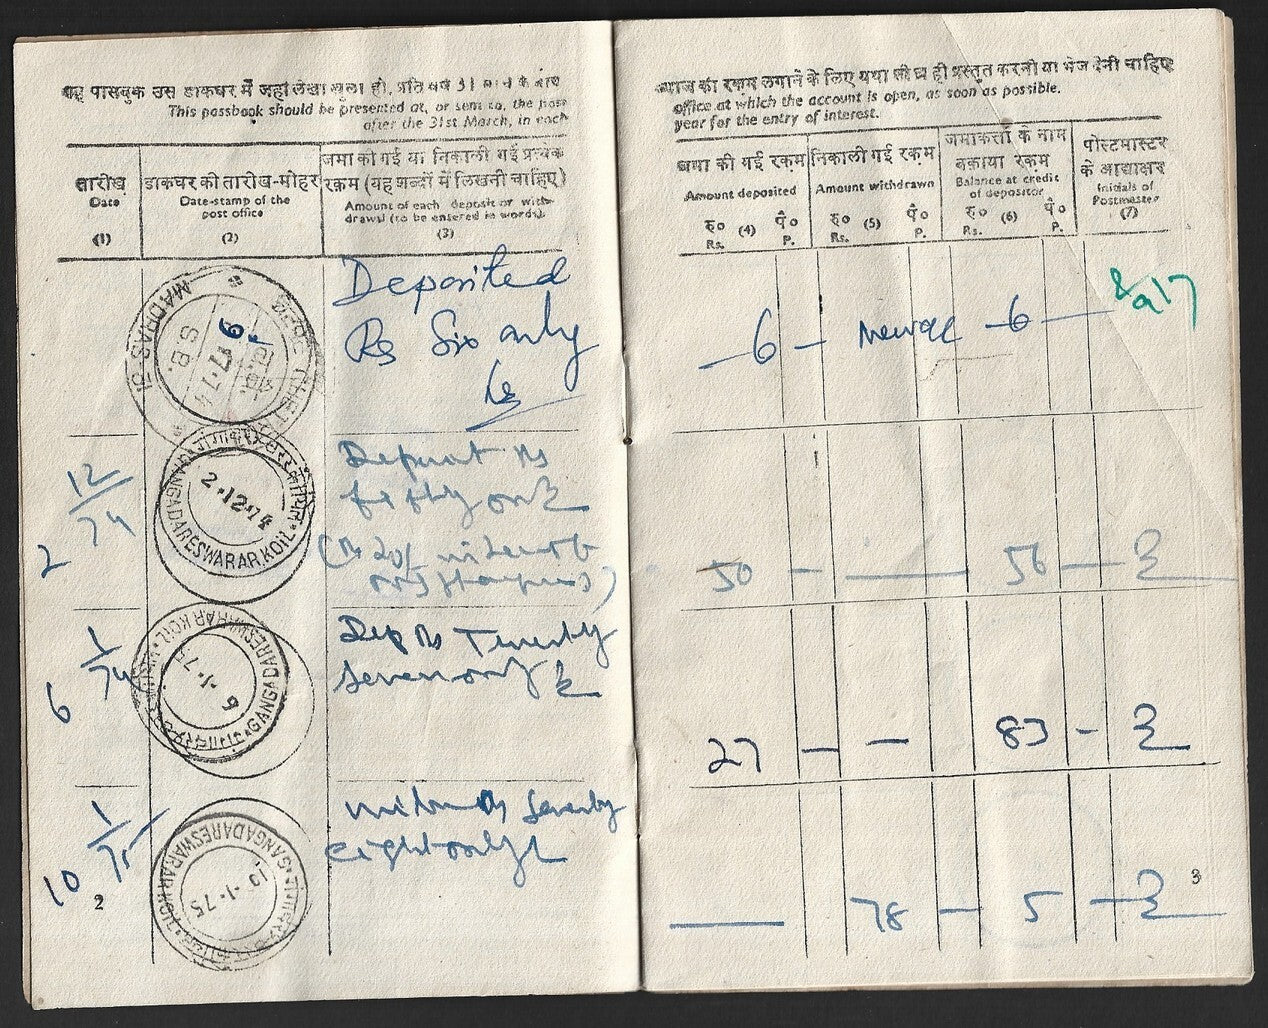 यह पासबुक उस डाकघर में जहां लेखा खुला हो, प्रति वर्ष 31 मार्च के बाद
This passbook should be presented at, or sent to, the post
after the 31st March, in each
तारीख
Date
(1)
डाकघर की तारीख-मोहर
Date-stamp of the
post office
(2)
जमा की गई या निकाली गई प्रत्येक
रकम (यह शब्दों में लिखनी चाहिए)
Amount of each deposit or with-
drawal (to be entered in words).
(3)
MADRAS-5
S.B.
17.7.74
Deposited
Rs Six only
12/74
2
2.12.74
GANGADARESWARAR.KOIL
Deposit Rs
fifty only
1/74
6
6-1-75
GANGADARESWARAR KOIL
Dep Rs Twenty
seven only
1/75
10
10-1-75
GANGADARESWARAR KOIL
Rs seventy
eight only
2
ब्याज की रकम लगाने के लिए यथा शीघ्र ही प्रस्तुत करनी या भेज देनी चाहिए
office at which the account is open, as soon as possible.
year for the entry of interest.
जमा की गई रकम
Amount deposited
रु० (4) पै०
Rs. P.
निकाली गई रकम
Amount withdrawn
रु० (5) पै०
Rs. P.
जमाकर्ता के नाम
बकाया रकम
Balance at credit
of depositor
रु० (6) पै०
Rs. P.
पोस्टमास्टर
के आद्याक्षर
Initials of
Postmaster
(7)
6 - 6
50 - 56
27 - - 83 -
78 - 5
3